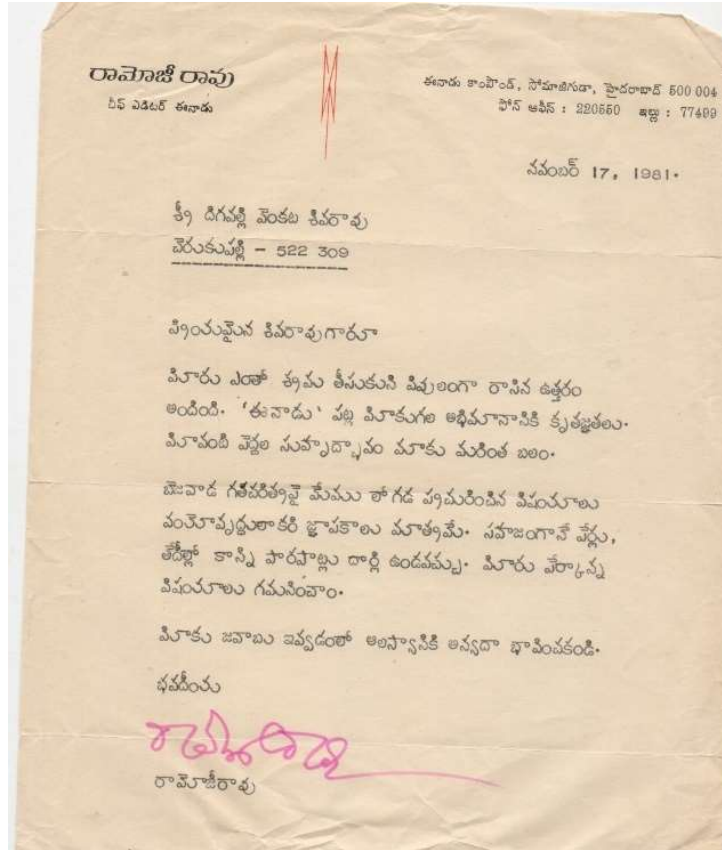 రామోజీ రావు
చీఫ్ ఎడిటర్ ఈనాడు
ఈనాడు కాంపౌండ్, సోమాజిగుడా, హైదరాబాద్ 500 004
ఫోన్ ఆఫీస్ : 220550 ఇల్లు : 77499
నవంబర్ 17, 1981.
శ్రీ దిగవల్లి వెంకట శివరావు
చెరుకుపల్లి - 522 309
ప్రియమైన శివరావుగారూ
మీరు ఎంతో శ్రమ తీసుకుని విపులంగా రాసిన ఉత్తరం
అందింది. 'ఈనాడు' పట్ల మీకుగల అభిమానానికి కృతజ్ఞతలు.
మీవంటి పెద్దల సుహృద్భావం మాకు మరింత బలం.
బెజవాడ గతచరిత్రపై మేము లోగడ ప్రచురించిన విషయాలు
వయోవృద్ధులాకరి జ్ఞాపకాలు మాత్రమే. సహజంగానే పేర్లు,
తేదీల్లో కొన్ని పొరపాట్లు దొర్లి ఉండవచ్చు. మీరు పేర్కొన్న
విషయాలు గమనించాం.
మీకు జవాబు ఇవ్వడంలో ఆలస్యానికి అన్యదా భావించకండి.
భవదీయ
రామోజీరావు
రామోజీరావు